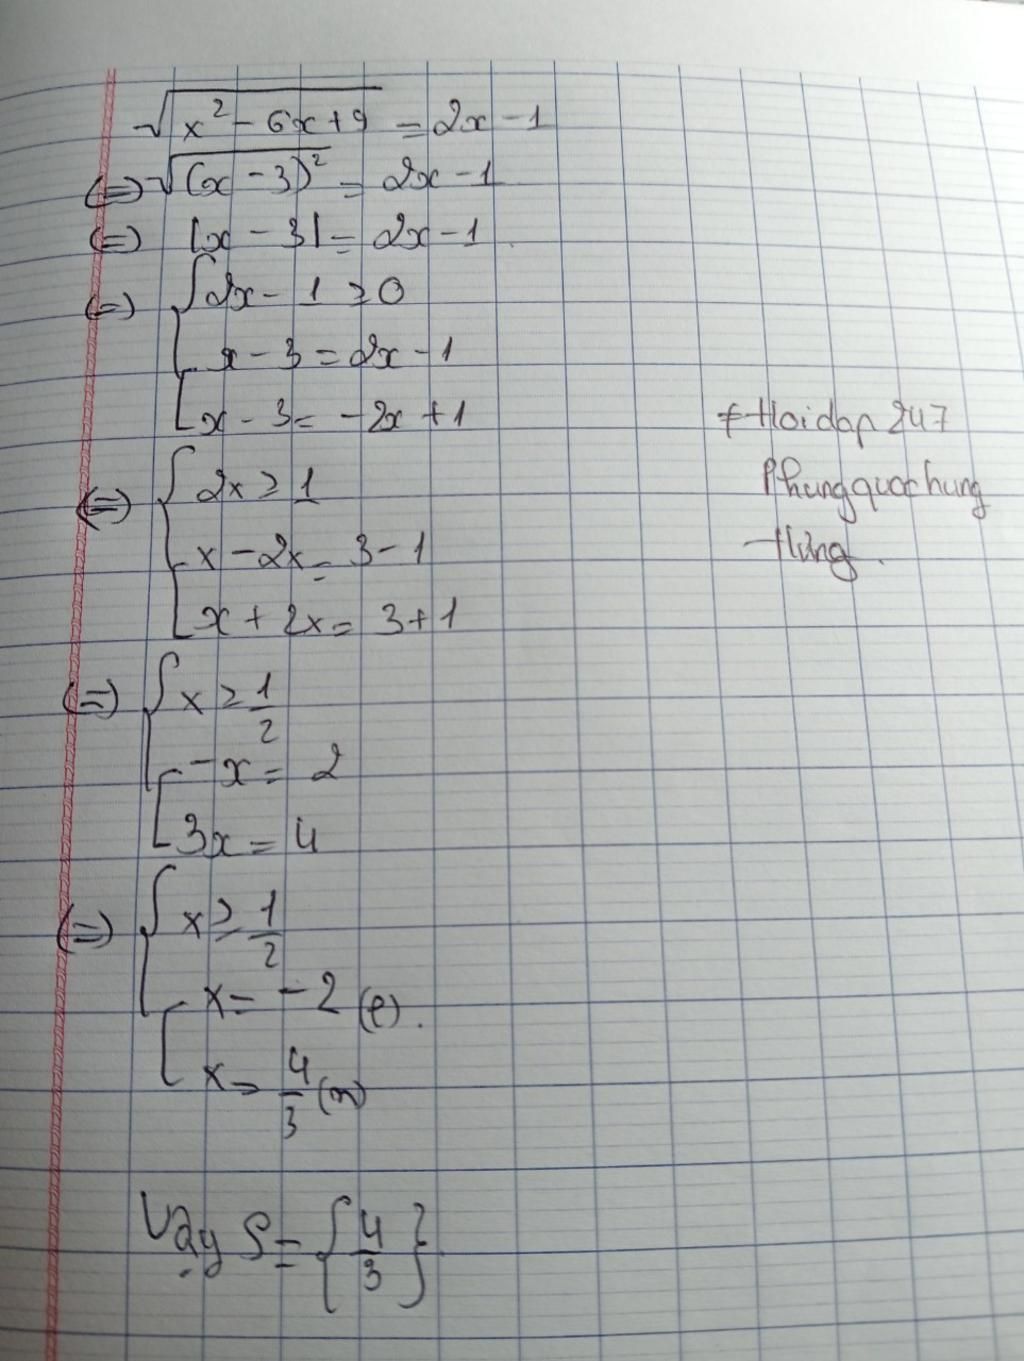 √(x² - 6x + 9) = 2x - 1
(=) √(x - 3)² = 2x - 1
(=) |x - 3| = 2x - 1
(=) { 2x - 1 ≥ 0
[ x - 3 = 2x - 1
x - 3 = -2x + 1
(=) { 2x ≥ 1
[ x - 2x = 3 - 1
x + 2x = 3 + 1
(=) { x ≥ 1/2
[ -x = 2
3x = 4
(=) { x ≥ 1/2
[ x = -2 (l).
x = 4/3 (n)
Vậy S = {4/3}
# Hoidap247
Phungquochung
Hưng.